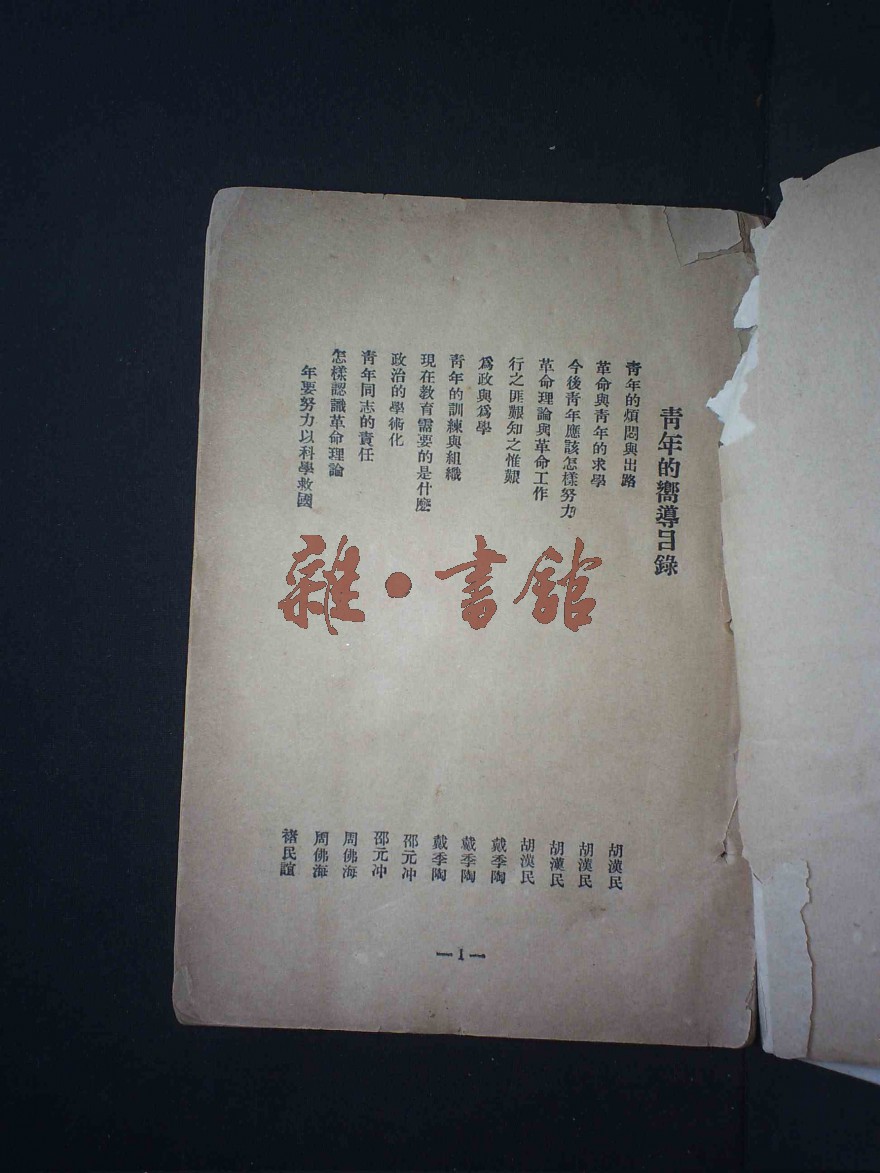 青年的嚮導目錄
青年的煩悶與出路 胡漢民
革命與青年的求學 胡漢民
今後青年應該怎樣努力 胡漢民
革命理論與革命工作 胡漢民
行之匪艱知之惟艱 戴季陶
爲政與爲學 戴季陶
青年的訓練與組織 戴季陶
現在教育需要的是什麽 邵元冲
政治的學術化 邵元冲
青年同志的責任 周佛海
怎樣認識革命理論 周佛海
年要努力以科學救國 褚民誼
—1—
雜·書館